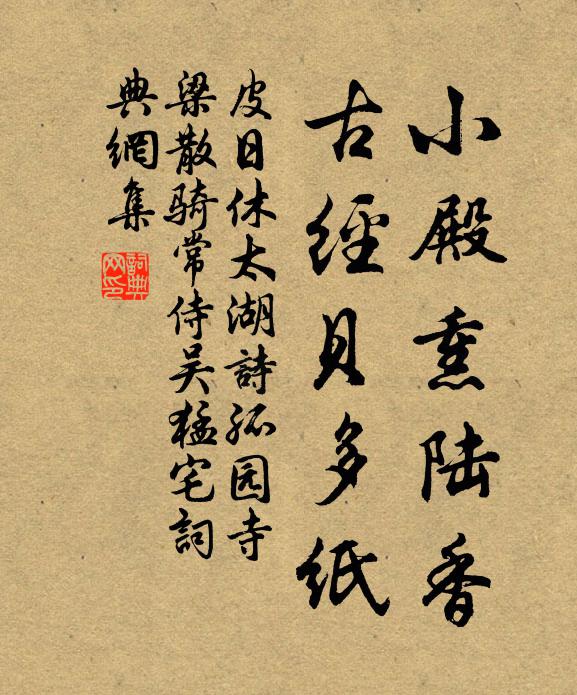 小殿熏陆香
古經貝多紙
皮日休太湖詩孤园寺
梁散骑常侍吴猛宅詞
典網集
詞典网印